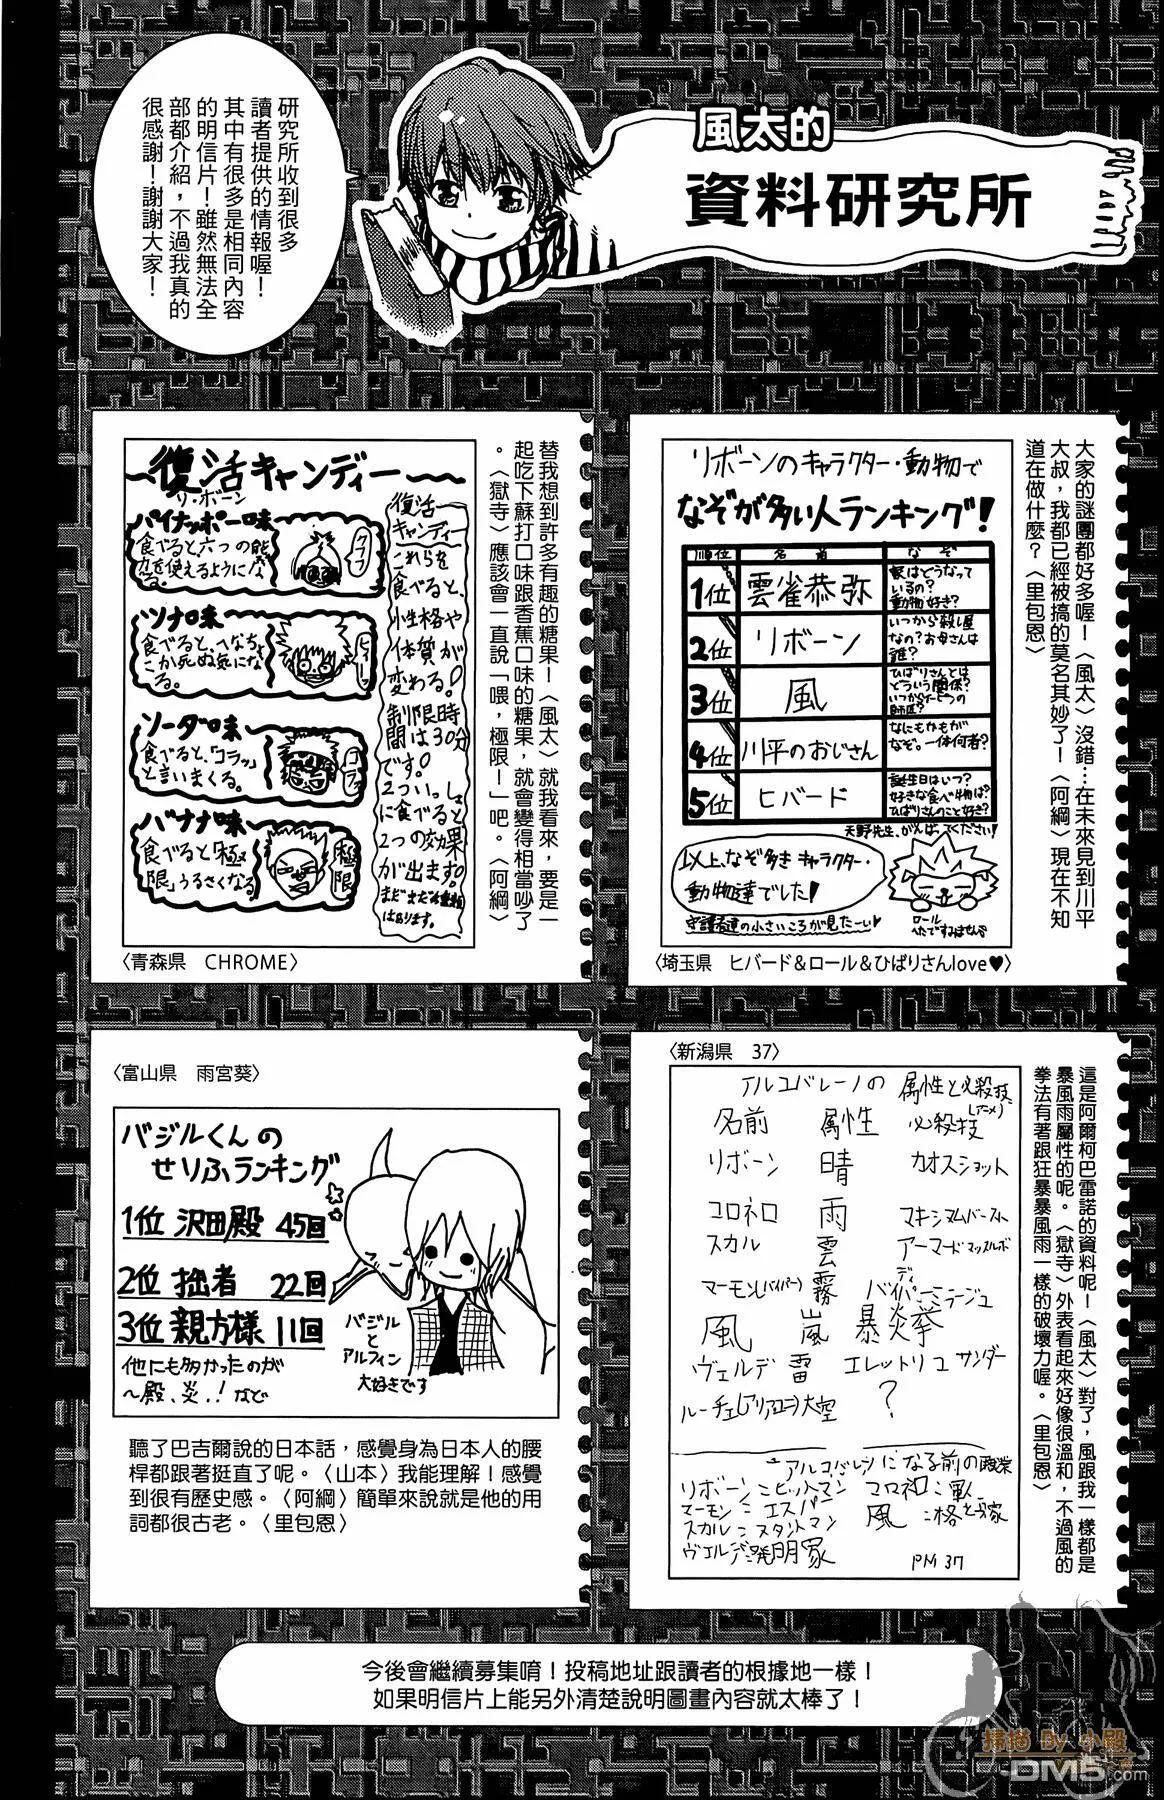 風太的
資料研究所
研究所收到很多
讀者提供的情報喔！
其中有很多是相同內容
的明信片！雖然無法全
部都介紹，不過我真的
很感謝！謝謝大家！
大家的謎團都好多喔！〈風太〉沒錯…在未來見到川平
大叔，我都已經被搞的莫名其妙了！〈阿綱〉現在不知
道在做什麼？〈里包恩〉
リボーンのキャラクター・動物で
なぞが多い人ランキング！
順位 名前 なぞ
1位 雲雀恭弥 家はどうなっているの？動物好き？
2位 リボーン いつから殺し屋なの？お母さんは誰？
3位 風 ひばりさんとはどういう関係？いつから の師匠？
4位 川平のおじさん なにもかもがなぞ。一体何者？
5位 ヒバード 誕生日はいつ？好きな食べ物は？ひばりさんのこと好き？
天野先生、がんばってください！
以上、なぞ多きキャラクター・
動物達でした！
守護者達の小さいころが見たーい♥
ロール
へたですみません
〈埼玉県　ヒバード＆ロール＆ひばりさんlove♥〉
替我想到許多有趣的糖果！〈風太〉就我看來，要是一
起吃下蘇打口味跟香蕉口味的糖果，就會變得相當吵了
。〈獄寺〉應該會一直說「喂，極限！」吧。〈阿綱〉
復活キャンディー
リ・ボーン
パイナッポー味
食べると六つの能
力を使えるようにな
る。
クフフ
ツナ味
食べると、へなちょ
こが死ぬ気にな
る。
ソーダ味
食べると、「コラッ」
と言いまくる。
コラ
バナナ味
食べると「極
限」うるさくなる
極限
復活
キャンディー
これらを
食べると、
性格や
体質が
変わる！
制限時
間は30分
です。
2ついっしょ
に食べると
2つの効果
が出ます。
まだまだ種類
はあります。
〈青森県　CHROME〉
〈新潟県　37〉
アルコバレーノの 属性と必殺技
(アニメ)
名前 属性 必殺技
リボーン 晴 カオスショット
コロネロ 雨 マキシマムバースト
スカル 雲 アーマードマッスルボディ
マーモン(バイパー) 霧 バイパーミラージュ
風 嵐 暴炎拳
ヴェルデ 雷 エレットリコサンダー
ルーチェ(アリア、ユニ) 大空 ？
アルコバレーノになる前の職業
リボーン＝ヒットマン コロネロ＝軍人
マーモン＝エスパー 風＝格とう家
スカル＝スタントマン
ヴェルデ＝発明家
PN 37
這是阿爾柯巴雷諾的資料呢！〈風太〉對了，風跟我一樣都是
暴風雨屬性的呢。〈獄寺〉外表看起來好像很溫和，不過風的
拳法有著跟狂暴暴風雨一樣的破壞力喔。〈里包恩〉
〈富山県　雨宮葵〉
バジルくんの
せりふランキング
1位 沢田殿 45回
2位 拙者 22回
3位 親方様 11回
他にも多かったのが
～殿、炎、！など
バジル
と
アルフィン
大好きです
聽了巴吉爾說的日本話，感覺身為日本人的腰
桿都跟著挺直了呢。〈山本〉我能理解！感覺
到很有歷史感。〈阿綱〉簡單來說就是他的用
詞都很古老。〈里包恩〉
今後會繼續募集唷！投稿地址跟讀者的根據地一樣！
如果明信片上能另外清楚說明圖畫內容就太棒了！
掃描 By 小毅
DM5